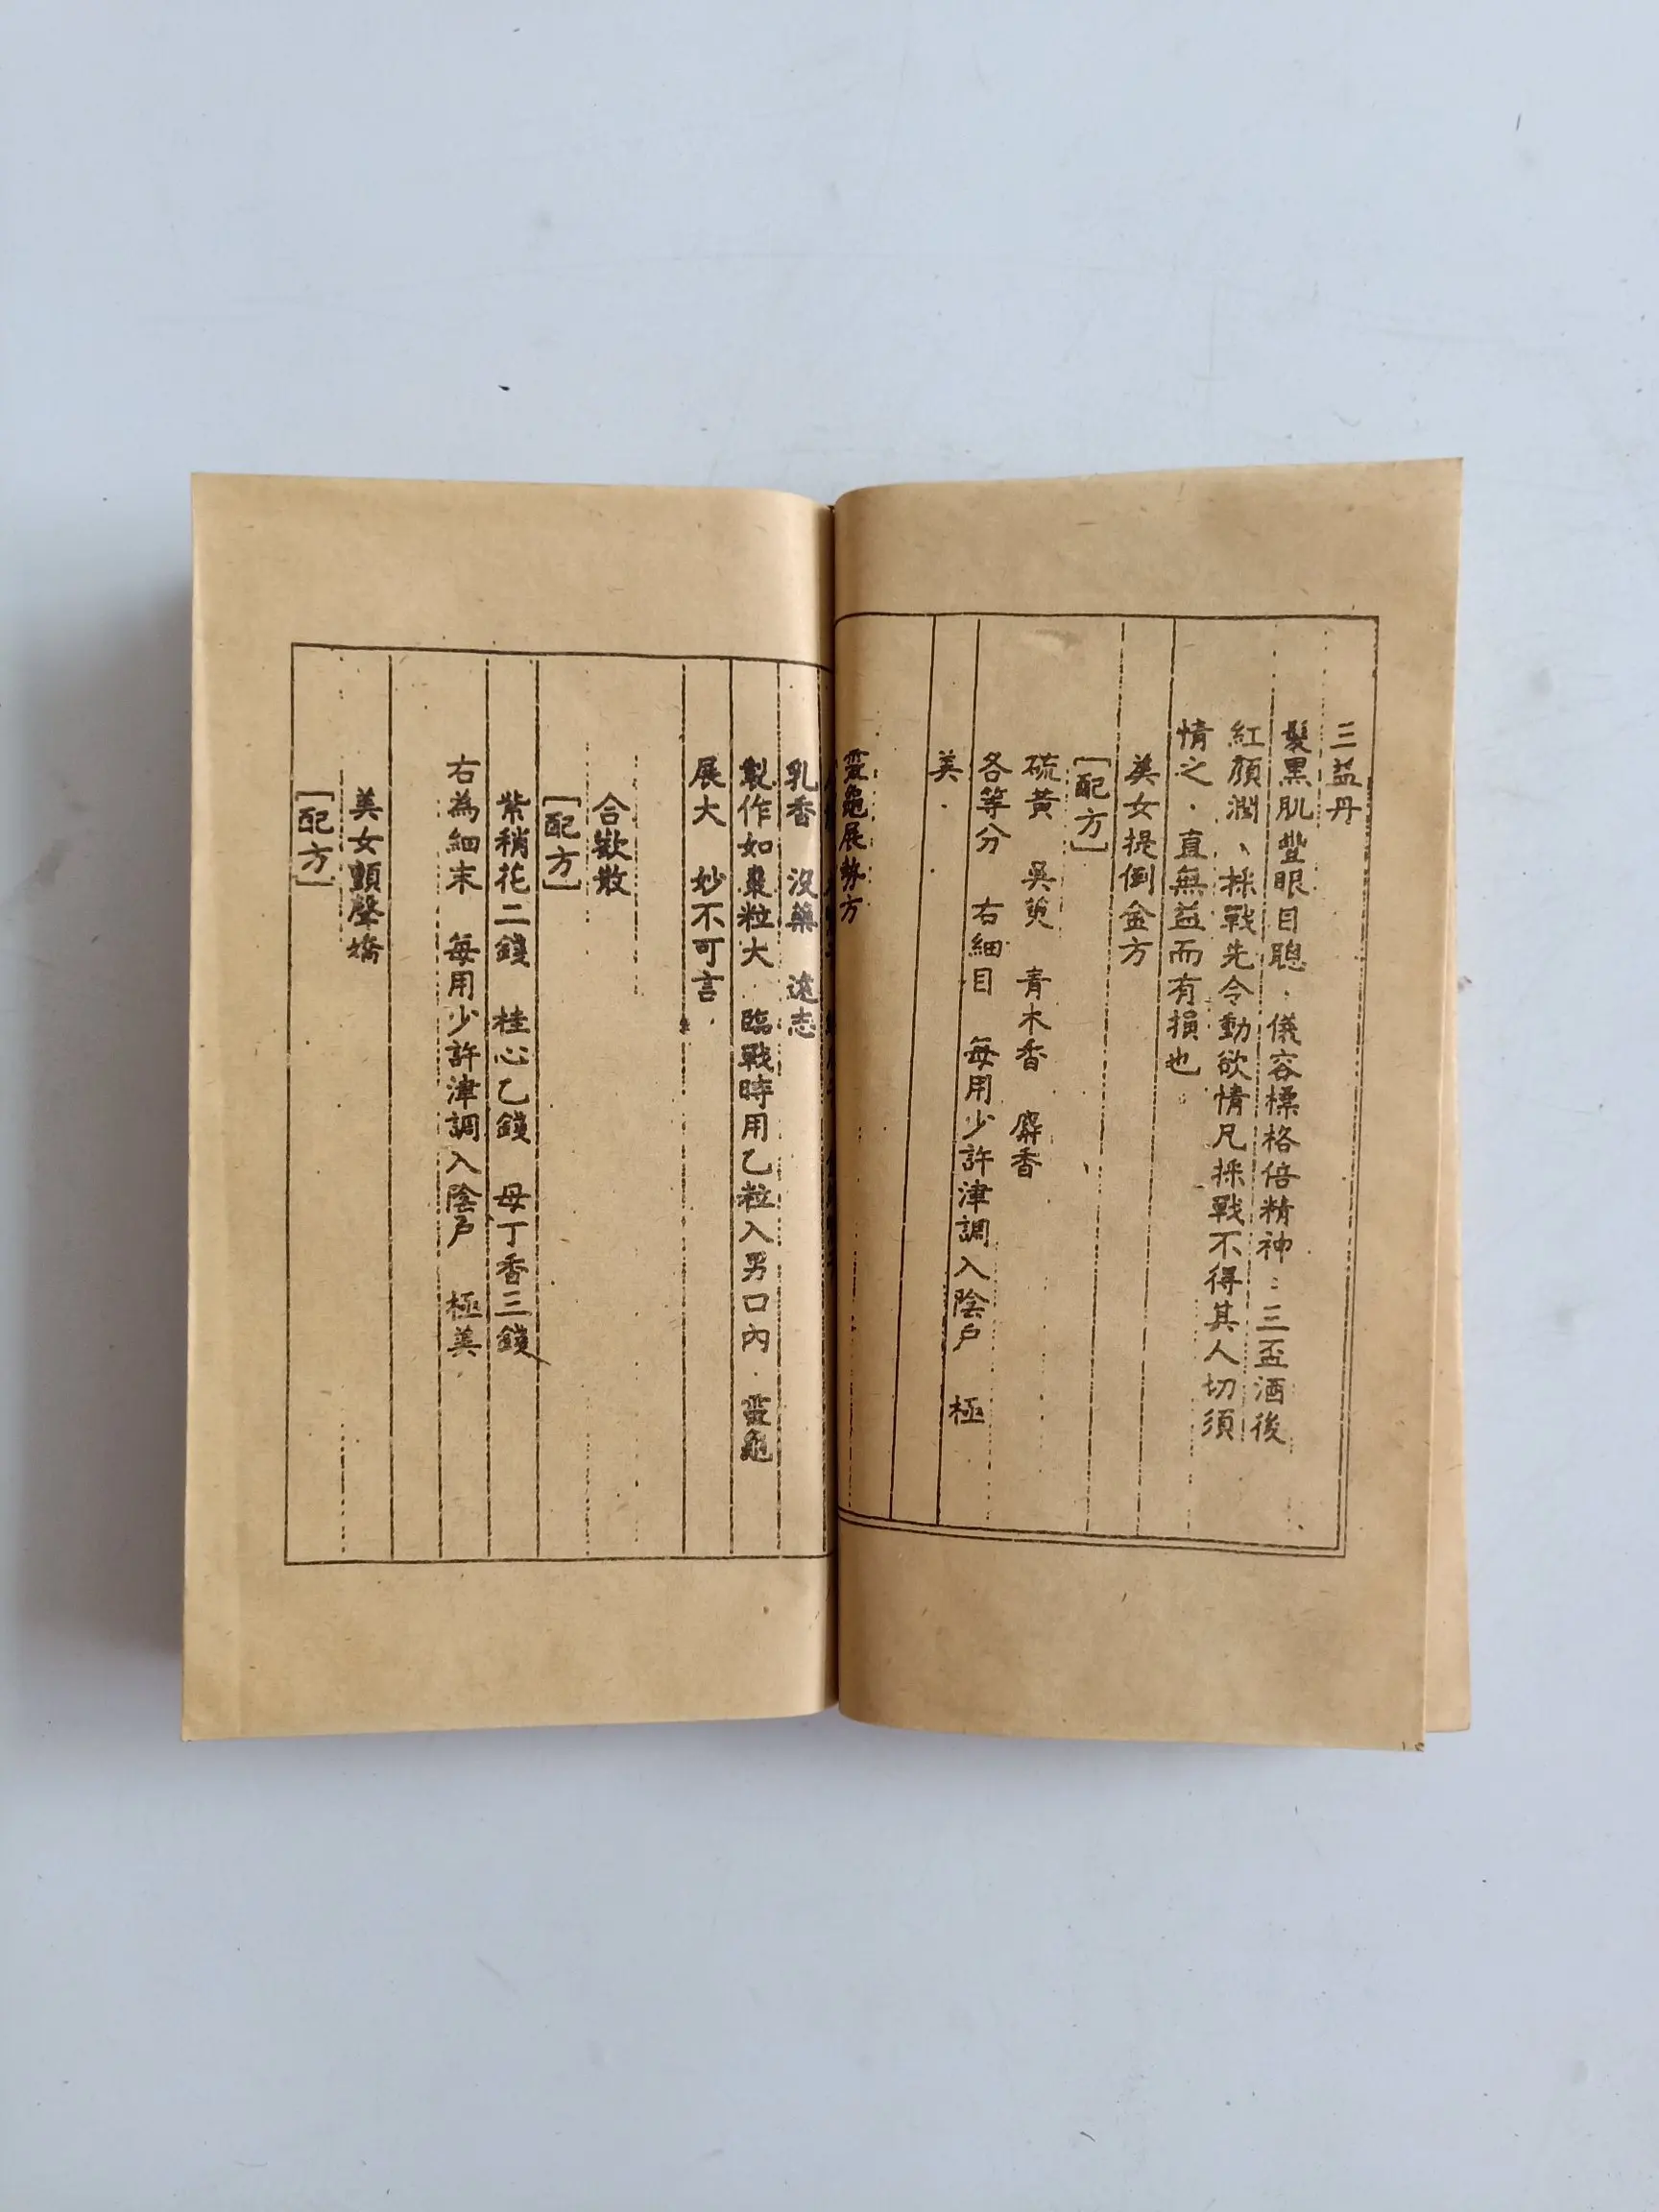 三益丹
髮黑肌豐眼目聰．儀容標格倍精神：三盃酒後
紅顏潤、採戰先令動欲情凡採戰不得其人切須
情之．直無益而有損也
美女提倒金方
［配方］
硫黃　吳萸　青木香　麝香
各等分　右細目　每用少許津調入陰户　極
美．
靈龜展勢方
乳香　沒藥　遠志
製作如棗粒大　臨戰時用乙粒入男口內．靈龜
展大　妙不可言．
合歡散
［配方］
紫稍花二錢　桂心乙錢　母丁香三錢
右為細末　每用少許津調入陰户　極美
美女顫聲嬌
［配方］